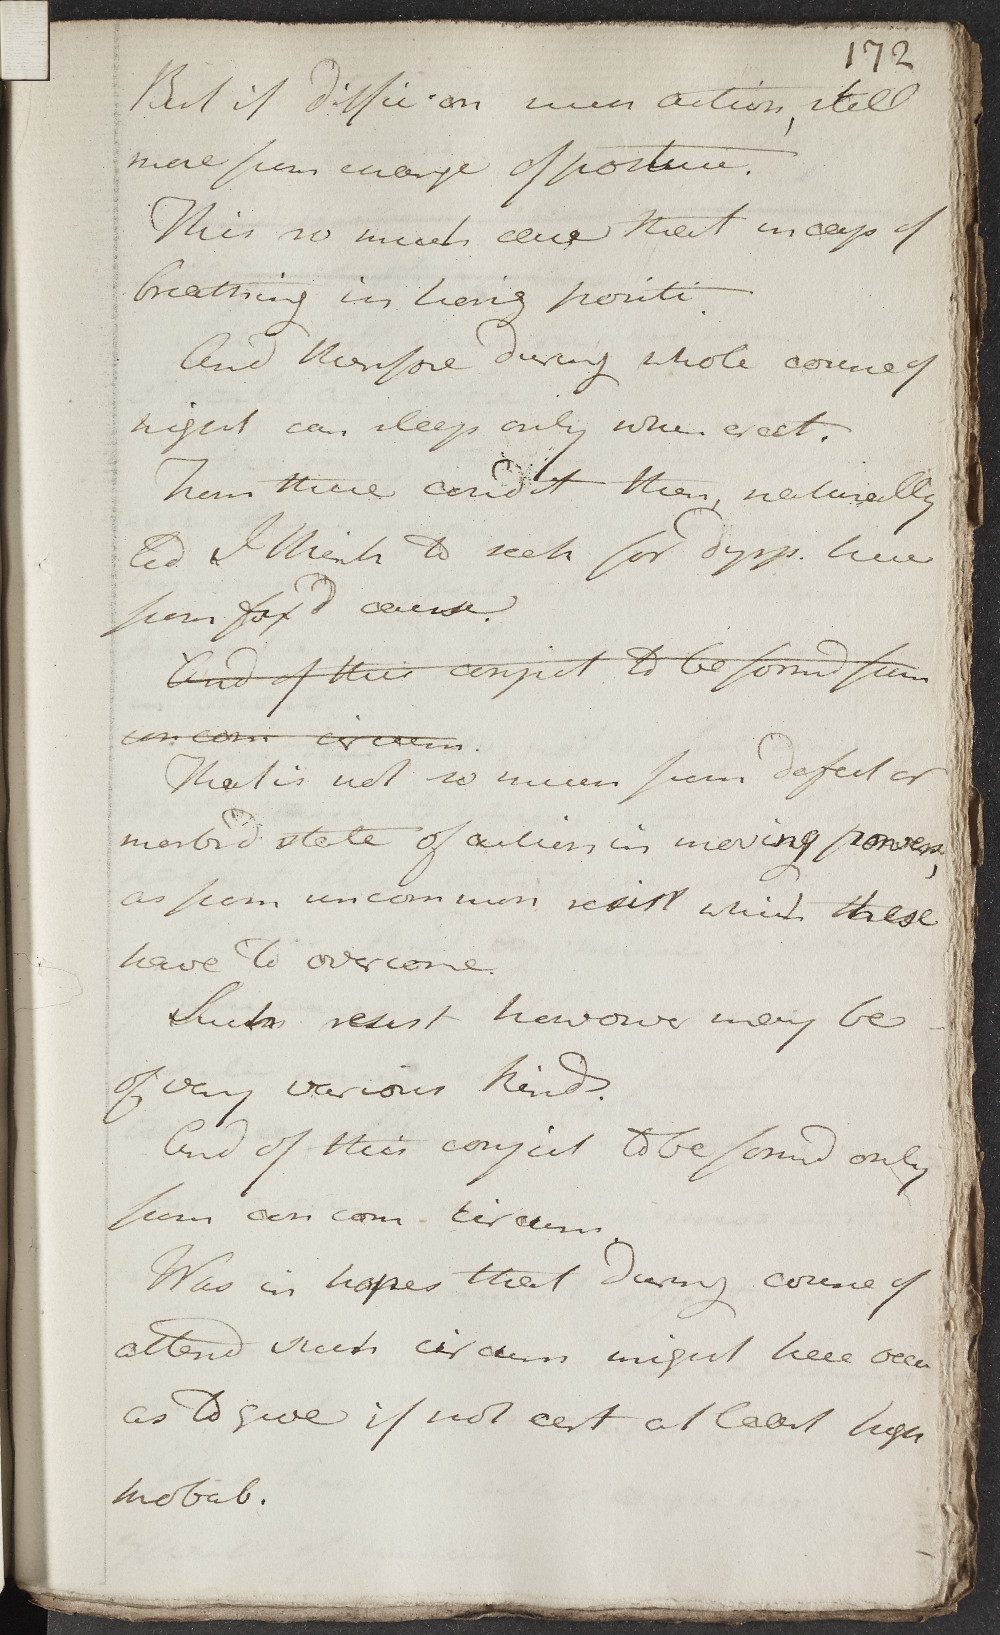 172
But if diffic. on mus action, still
more from change of posture.
This so much case that incap of
breathing in horiz positi.
And therefore during whole course of
night can sleep only when erect.
From these condit then, naturally
led I think to seek for dysp. here
from fix'd cause.
And of this conject to be formd from
concom circum.
That is not so much from defect or
morbid state of action in moving powers,
as from uncommon resist which these
have to overcome.
Such resist however may be
of very various kinds.
And of this conject to be formd only
from concom. circum.
Was in hopes that during course of
attend such circum might here occur
as to give if not cert at least high
probab.